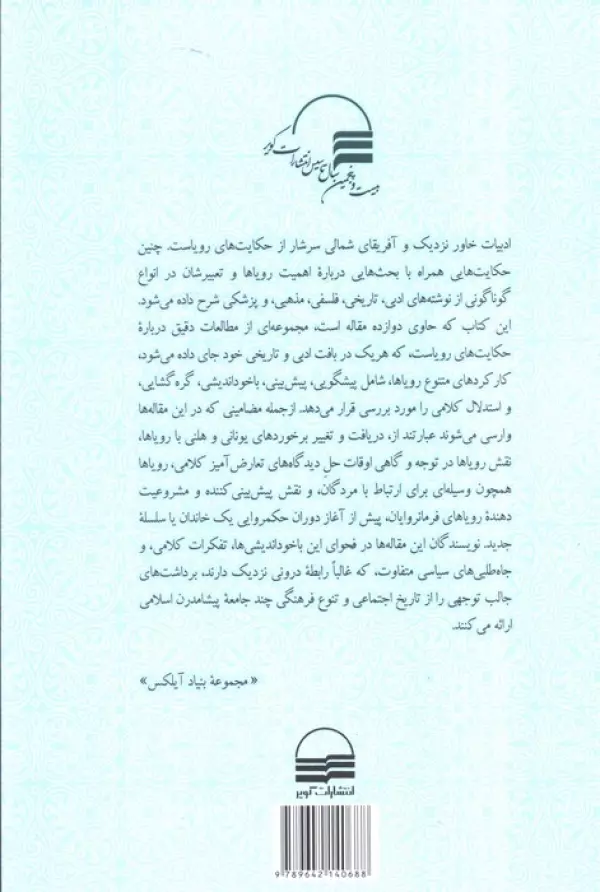 بیست و پنجمین سال تاسیس انتشارات کویر
ادبیات خاور نزدیک و آفریقای شمالی سرشار از حکایت‌های رویاست. چنین
حکایت‌هایی همراه با بحث‌هایی دربارهٔ اهمیت رویاها و تعبیرشان در انواع
گوناگونی از نوشته‌های ادبی، تاریخی، فلسفی، مذهبی، و پزشکی شرح داده می‌شود.
این کتاب که حاوی دوازده مقاله است، مجموعه‌ای از مطالعات دقیق دربارهٔ
حکایت‌های رویاست، که هریک در بافت ادبی و تاریخی خود جای داده می‌شود،
کارکردهای متنوع رویاها، شامل پیشگویی، پیش‌بینی، باخوداندیشی، گره‌گشایی،
و استدلال کلامی را مورد بررسی قرار می‌دهد. ازجمله مضامینی که در این مقاله‌ها
وارسی می‌شوند عبارتند از، دریافت و تغییر برخوردهای یونانی و هلنی با رویاها،
نقش رویاها در توجه و گاهی اوقات حلِ دیدگاه‌های تعارض‌آمیز کلامی، رویاها
همچون وسیله‌ای برای ارتباط با مردگان، و نقش پیش‌بینی‌کننده و مشروعیت
دهندهٔ رویاهای فرمانروایان، پیش از آغاز دوران حکمروایی یک خاندان یا سلسلهٔ
جدید. نویسندگان این مقاله‌ها در فحوای این باخوداندیشی‌ها، تفکرات کلامی، و
جاه‌طلبی‌های سیاسی متفاوت، که غالباً رابطهٔ درونی نزدیک دارند، برداشت‌های
جالب توجهی را از تاریخ اجتماعی و تنوع فرهنگی چند جامعهٔ پیشامدرن اسلامی
ارائه می‌کنند.
«مجموعهٔ بنیاد آیلکس»
انتشارات کویر
9 789642 140688